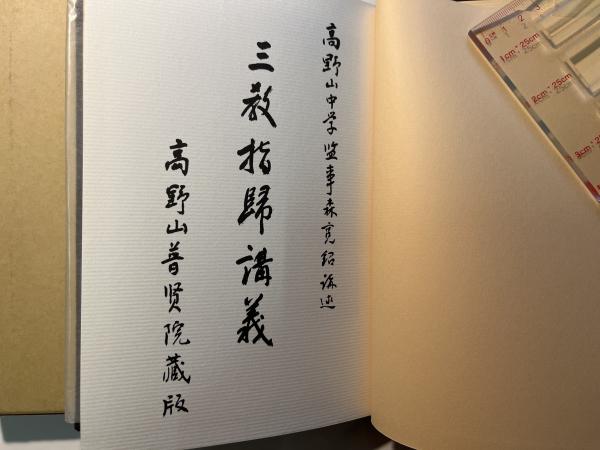 高野山中学监事森寛紹講述
三教指歸講義
高野山普賢院藏版
0 1 2 3
1cm:25cm
2cm:25cm
3cm:25